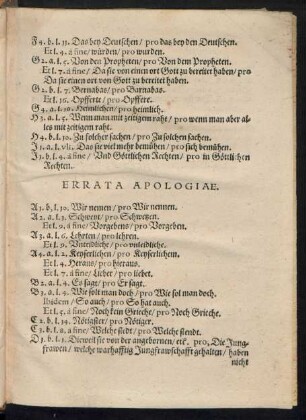 F4. b. l. 31. Das bey Deutschen/ pro das bey den Deutschen.
Et l. 4. â fine/ würden/ pro wurden.
G2. a. l. 5. Von den Propheten/ pro Von dem Propheten.
Et l. 7. â fine/ Da sie von einem ort Gott zu bereitet haben/ pro
Da sie einen ort von Gott zu bereitet haben.
G2. b. l. 7. Bernabas/ pro Barnabas.
Et l. 16. Opfferte/ pro Opffere.
G4. a. l. Heimlichen/ pro heimlich.
H3. a. l. 5. Wenn man mit zeitigem raht/ pro wenn man aber al-
les mit zeitigem raht.
H4. b. l. 10. Zu solcher sachen/ pro Zu solchen sachen.
J1. a. l. vlt. Das sie viel mehr bemühen/ pro sich bemühen.
J1. b. l. 9. â fine/ Und Göttlichen Rechten/ pro in Göttlichen
Rechten.
ERRATA APOLOGIAE.
A2. b. l. 30. Wir nemen/ pro Wir nennen.
A3. a. l. 3. Schwent/ pro Schwetzen.
Et l. 9. â fine/ Vorgebens/ pro Vorgeben.
A3. a. l. 6. Lehrten/ pro lehren.
Et l. 9. Unteidliche/ pro vnleidliche.
A4. a. l. 2. Keyserlichen/ pro Keyserlichem.
Et l. 4. Heraus/ pro hieraus.
Et l. 7. â fine/ Lieber/ pro liebet.
B2. a. l. 4. Es sagt/ pro Er sagt.
B3. a. l. 4. Wie solt man doch/ pro Wie sol man doch.
Ibidem/ So auch/ pro So hat auch.
Et l. 5. â fine/ Noch kein Grieche/ pro Noch Grieche.
C2. b. l. 14. Nötigster/ pro Nötiger.
C2. b. l. 2. â fine/ Welche stedt/ pro Welche stendt.
D1. b. l. 2. Dieweil sie von der angebornen/ etc. pro, Die Jung-
frawen/ welche warhafftig Jungfrawschafft gehalten/ haben
nicht